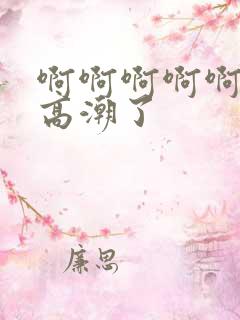 啊啊啊啊啊
高潮了
廉思